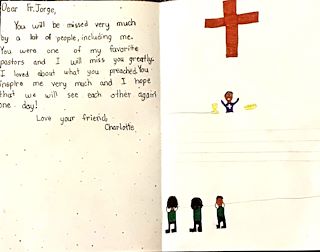 Dear Fr. Jorge,
You will be missed very much
by a lot of people, including me.
You were one of my favorite
pastors and I will miss you greatly.
I loved about what you preached. You
inspire me very much and I hope
that we will see each other again
one day!
Love your friend,
Charlotte